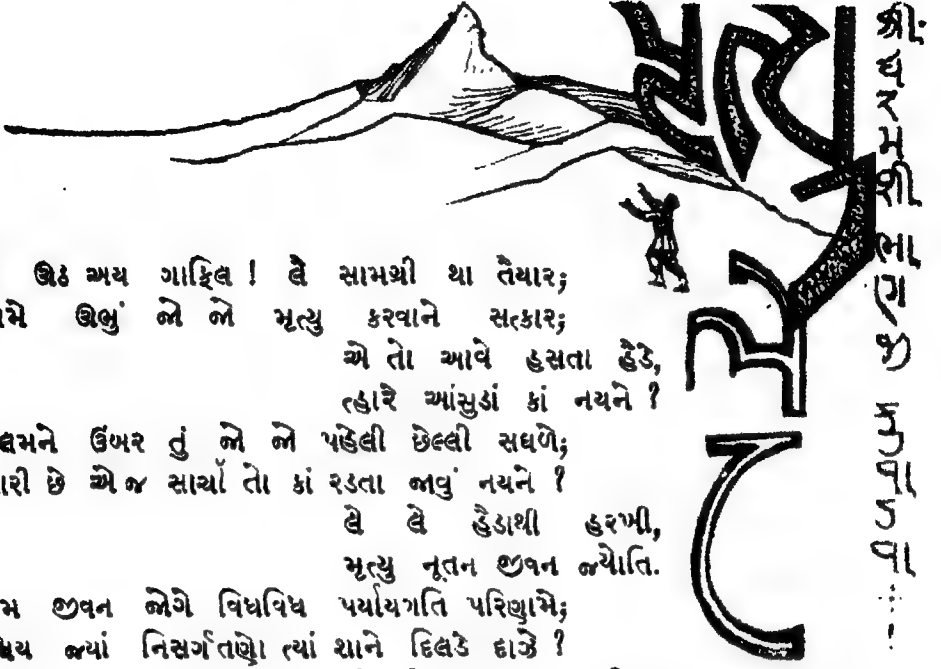 ઊઠ અય ગાફિલ ! લે સામગ્રી થા તૈયાર;
મે ઊભું જો જો મૃત્યુ કરવાને સત્કાર;
એ તો આવે હસતા હૈડે,
ત્હારે આંસુડાં કાં નયને ?
લમને ઉંબર તું જો જો પહેલી છેલ્લી સઘળે;
રી છે એ જ સાચાઁ તો કાં રડતા જાવું નયને ?
લે લે હૈડાથી હરખી,
મૃત્યુ નૂતન જીવન જ્યોતિ.
મ જીવન જોગે વિધવિધ પર્યાયગતિ પરિણામે;
ય જ્યાં નિસર્ગતણો ત્યાં શાને દિલડે દાઝે ?
શ્રી. ધરમશી ભાણજી કુવાડવા